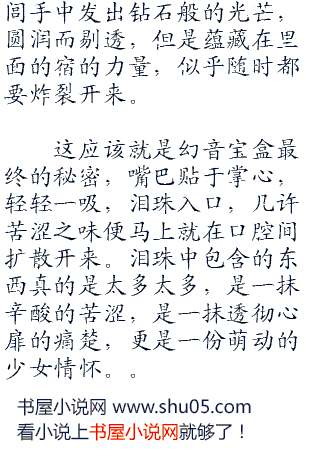 闾手中发出钻石般的光芒，
圆润而剔透，但是蕴藏在里
面的宿的力量，似乎随时都
要炸裂开来。
这应该就是幻音宝盒最
终的秘密，嘴巴贴于掌心，
轻轻一吸，泪珠入口，几许
苦涩之味便马上就在口腔间
扩散开来。泪珠中包含的东
西真的是太多太多，是一抹
辛酸的苦涩，是一抹透彻心
扉的痛楚，更是一份萌动的
少女情怀。。
书屋小说网 www.shu05.com
看小说上书屋小说网就够了！